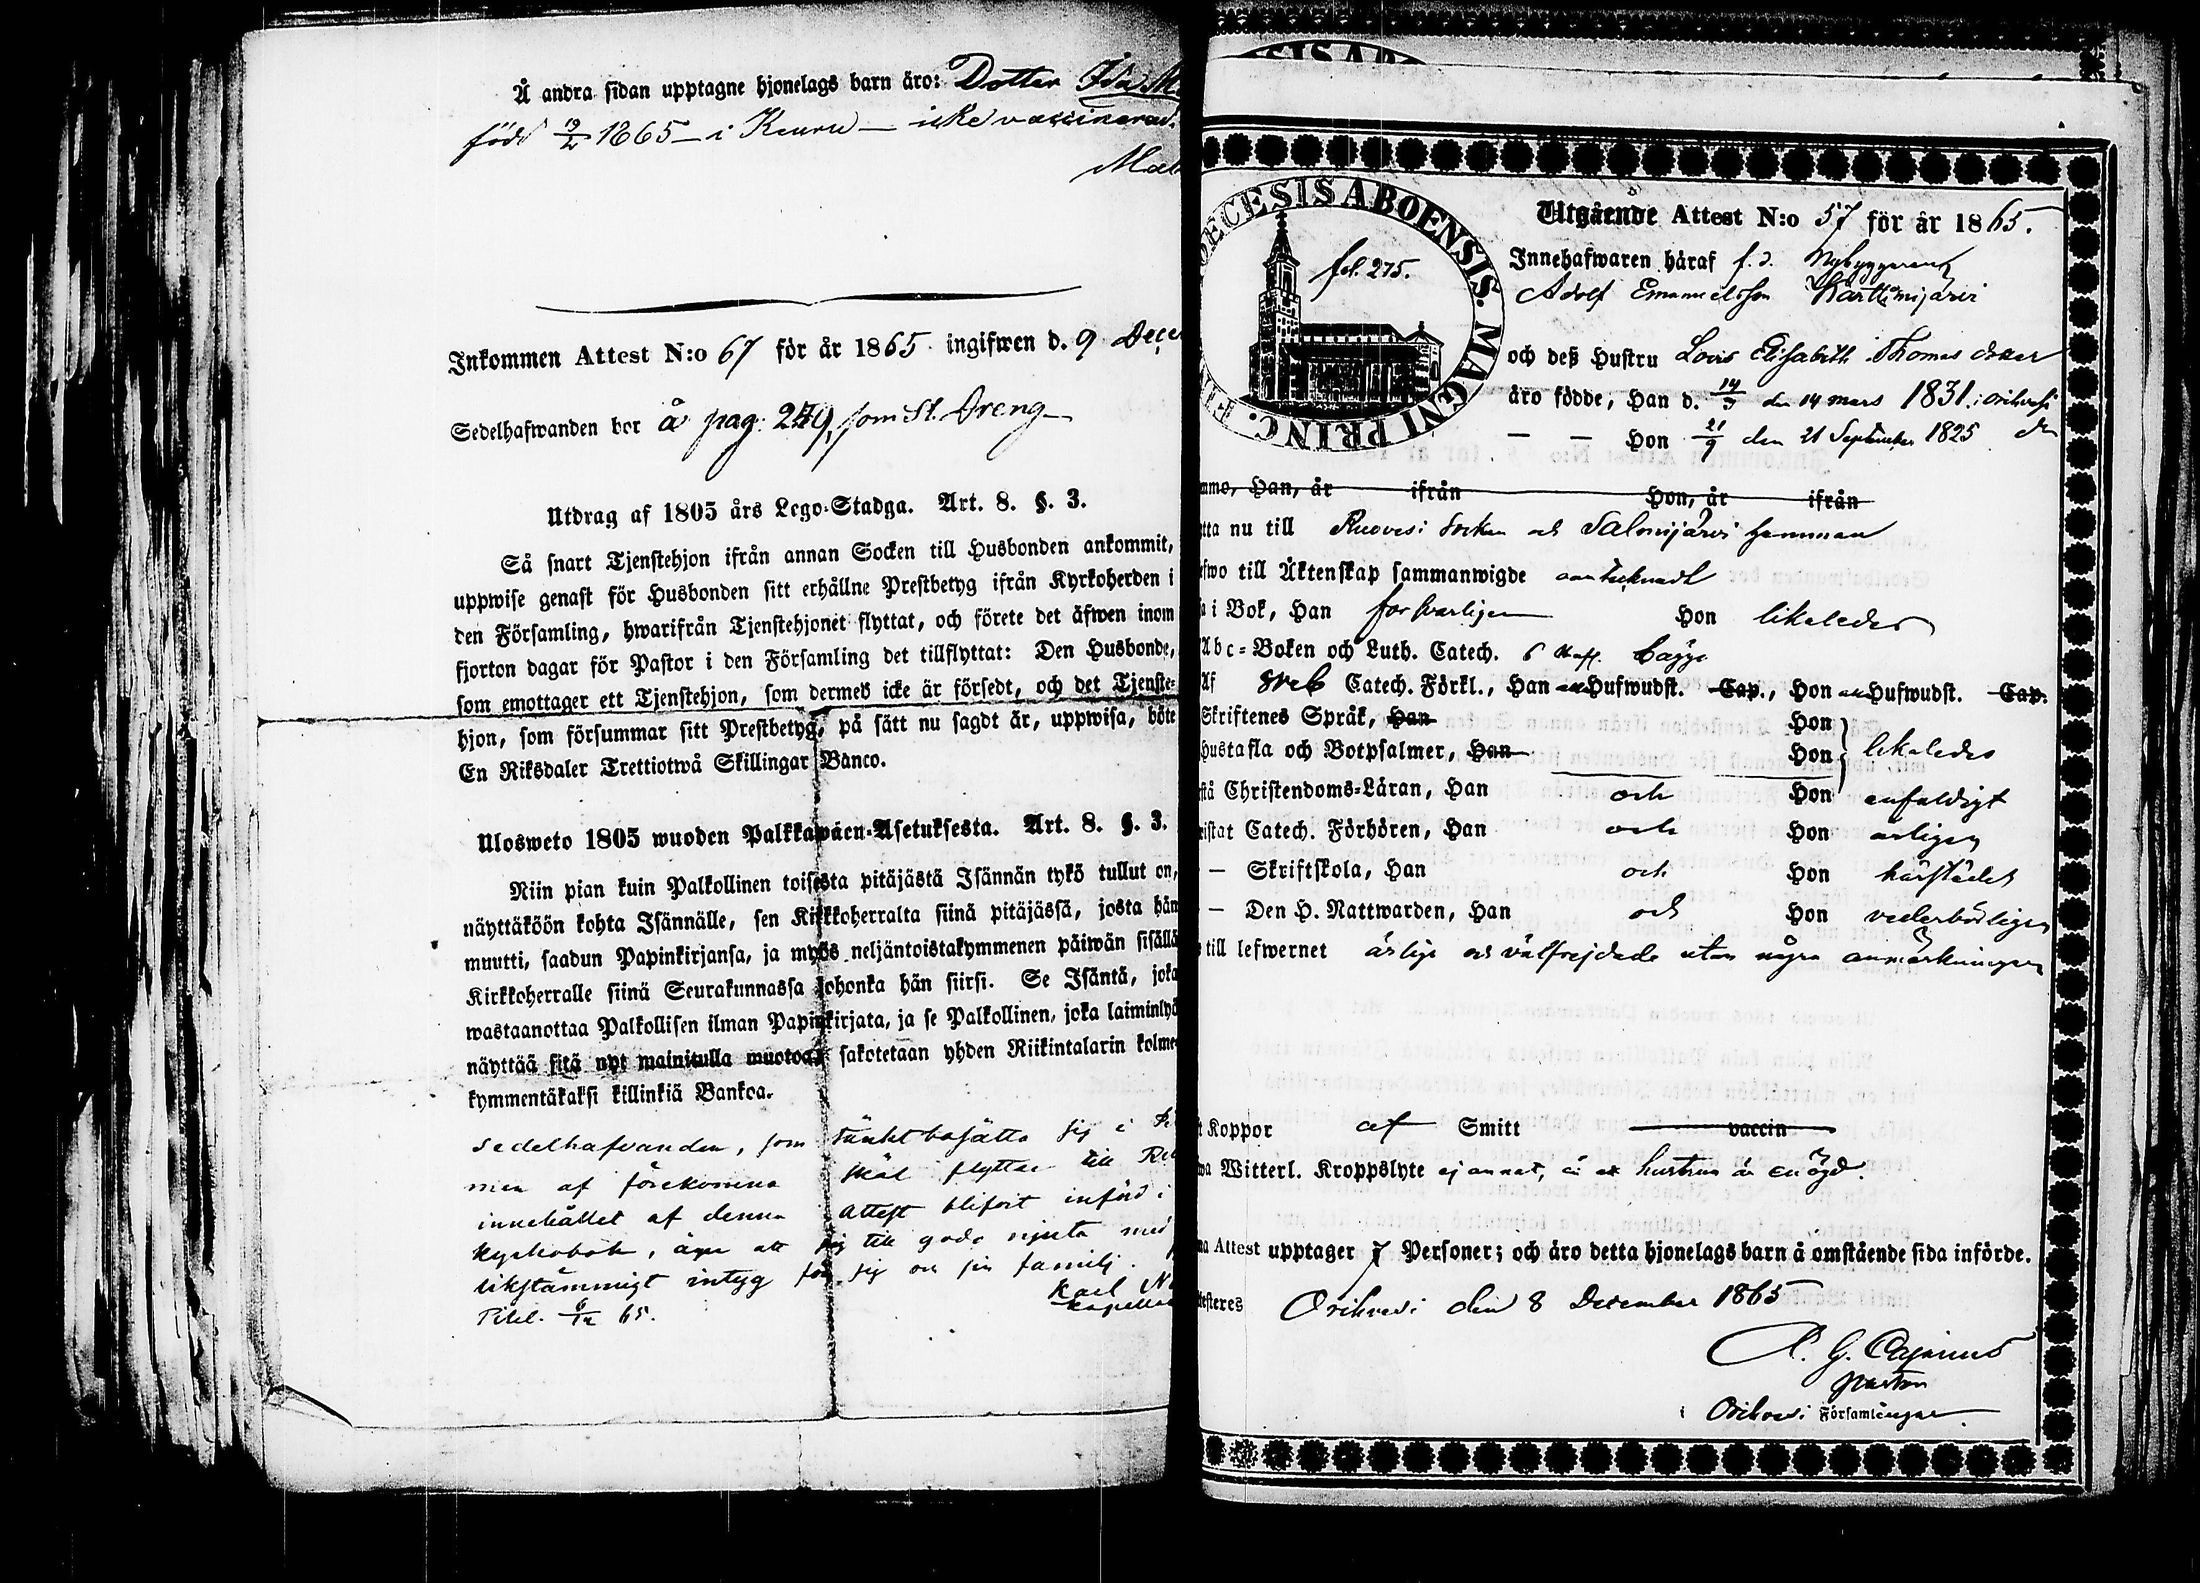 Å andra sidan upptagne hjonelags barn äro: Dotter Ida
född 19/2 1865 – i Keuru – icke vaccinerad.
Inkommen Attest N:o 67 för år 1865 ingifwen d. 9
Sedelhafwanden bor å pag: 249, som St. Dreng
Utdrag af 1805 års Lego-Stadga. Art. 8. §. 3.
Så snart Tjenstehjon ifrån annan Socken till Husbonden ankommit,
uppwise genast för Husbonden sitt erhållne Prestbetyg ifrån Kyrkoherden i
den Församling, hwarifrån Tjenstehjonet flyttat, och förete det äfwen inom
fjorton dagar för Pastor i den Församling det tillflyttat: Den Husbonde,
som emottager ett Tjenstehjon, som dermed icke är försedt, och det Tjenste-
hjon, som försummar sitt Prestbetyg, på sätt nu sagdt är, uppwisa, böte
En Riksdaler Trettiotwå Skillingar Banco.
Ulosweto 1805 wuoden Palkkawäen-Asetuksesta. Art. 8. §. 3.
Niin pian kuin Palkollinen toisesta pitäjästä Isännän tykö tullut on,
näyttäköön kohta Isännälle, sen Kirkkoherralta siinä pitäjässä, josta hän
muutti, saadun Papinkirjansa, ja myös neljäntoistakymmenen päiwän sisällä
Kirkkoherralle siinä Seurakunnassa johonka hän siirsi. Se Isäntä, joka
wastaanottaa Palkollisen ilman Papinkirjata, ja se Palkollinen, joka laiminlyö
näyttää sitä nyt mainitulla muotoa, sakotetaan yhden Riikintalarin kolme-
kymmentäkaksi killinkiä Bankoa.
Sedelhafvanden, som tänkt bosätta sig i
men af förekomna skäl flyttar till
innehållet af denna attest blifvit införd i
kyrkobok, äger att sig till godo njuta med
likstämmigt intyg för sig och sin familj.
6/12 65. Karl
DIOECESIS ABOENSIS. MAGNI PRINC. FINL.
fol. 275.
Utgående Attest N:o 57 för år 1865.
Innehafwaren häraf f. d. Nybyggaren
Adolf Emanuelsson
och deß Hustru Lovis Elisabeth Thomas dotter
äro födde, Han d. 14/3 den 14 mars 1831. i Orihvesi
– – Hon 21/9 den 21 September 1825
Han, år ifrån Hon, år ifrån
nu till Ruovesi Socken och Salonsjärvi hemman
till Äktenskap sammanwigde
i Bok, Han försvarligen Hon likaledes
Abc-Boken och Luth. Catech.
Af Sveb Catech. Förkl., Han Hufwudst. Cap., Hon Hufwudst. Cap.
Skriftenes Språk, Han Hon
Hustafla och Botpsalmer, Han Hon likaledes
Christendoms-Läran, Han och Hon enfaldigt
Catech. Förhören, Han och Hon årligen
– Skriftskola, Han och Hon härstädes
– Den H. Nattwarden, Han och Hon vederbörligen
till lefwernet ärlige och välfrejdade utan några anmärkningar
Koppor af Smitt vaccin
Witterl. Kroppslyte ej annat, än att hustrun är enögd.
Attest upptager 7 Personer; och äro detta hjonelags barn å omstående sida införde.
Orihvesi den 8 December 1865
Pastor
i Orihvesi Församlingar.